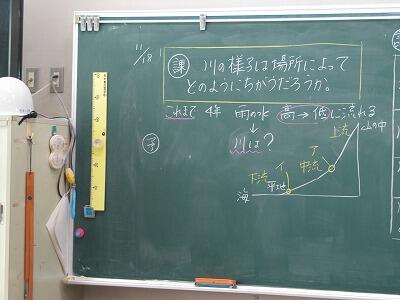 11/18
課 川の様子は場所によって
どのようにちがうだろうか。
これまで 4年 雨の水 高→低に流れる
↓
川は?
予
上流 山の中
ア
中流
イ
下流 平地
海